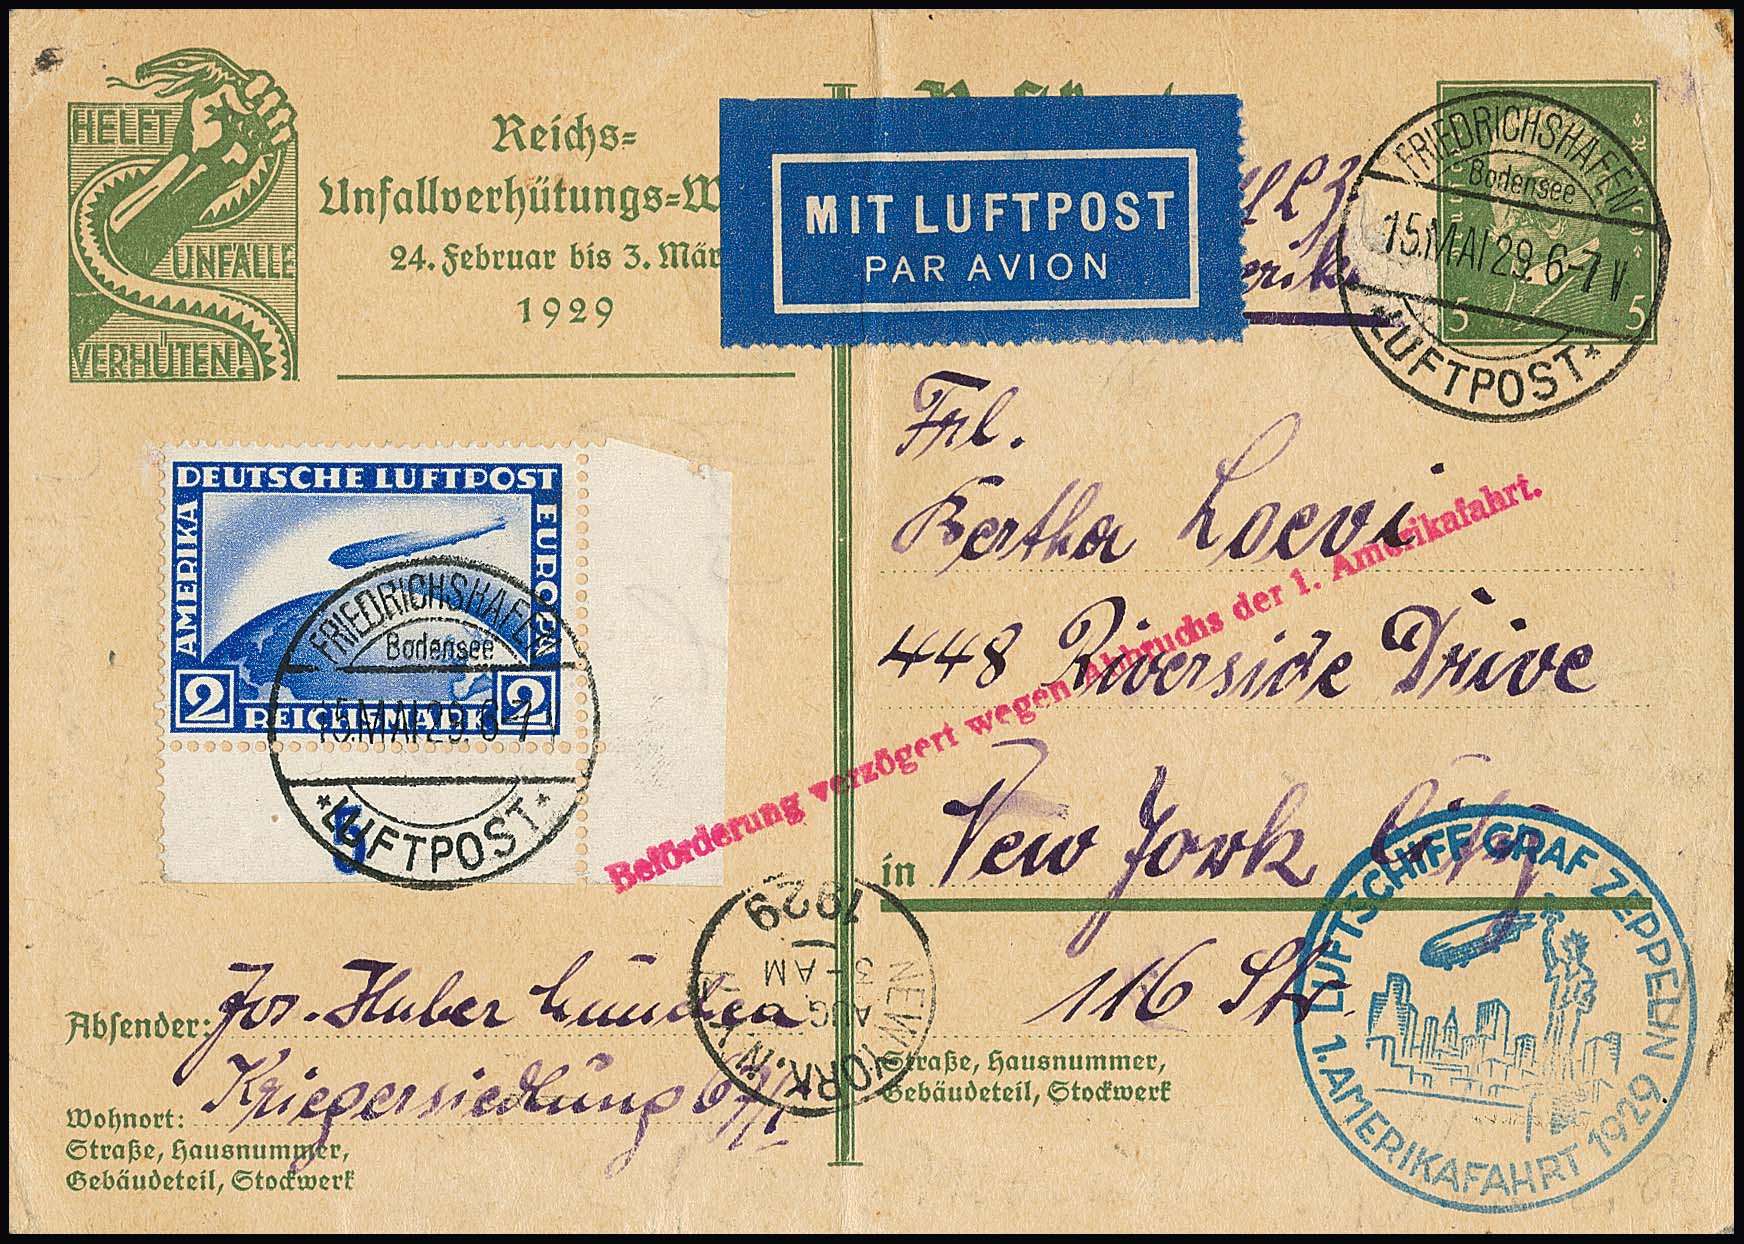 HELFT
UNFÄLLE
VERHÜTEN!
Reichs-
Unfallverhütungs-W
24. Februar bis 3. Mär
1929
MIT LUFTPOST
PAR AVION
FRIEDRICHSHAFEN
Bodensee
15.MAI 29. 6-7 V.
*LUFTPOST*
5 5
DEUTSCHE LUFTPOST
AMERIKA
EUROPA
2 REICHSMARK 2
FRIEDRICHSHAFEN
Bodensee
15.MAI 29. 6-7 V
*LUFTPOST*
6
Frl.
Bertha Loevi
448 Riverside Drive
in New York City
116 Str.
Beförderung verzögert wegen Abbruchs der 1. Amerikafahrt.
NEW YORK, N.Y.
AUG
3-AM
1929
LUFTSCHIFF GRAF ZEPPELIN
1. AMERIKAFAHRT 1929
Absender: Jos. Huber
Wohnort: Kriegersiedlung
Straße, Hausnummer,
Gebäudeteil, Stockwerk
Straße, Hausnummer,
Gebäudeteil, Stockwerk